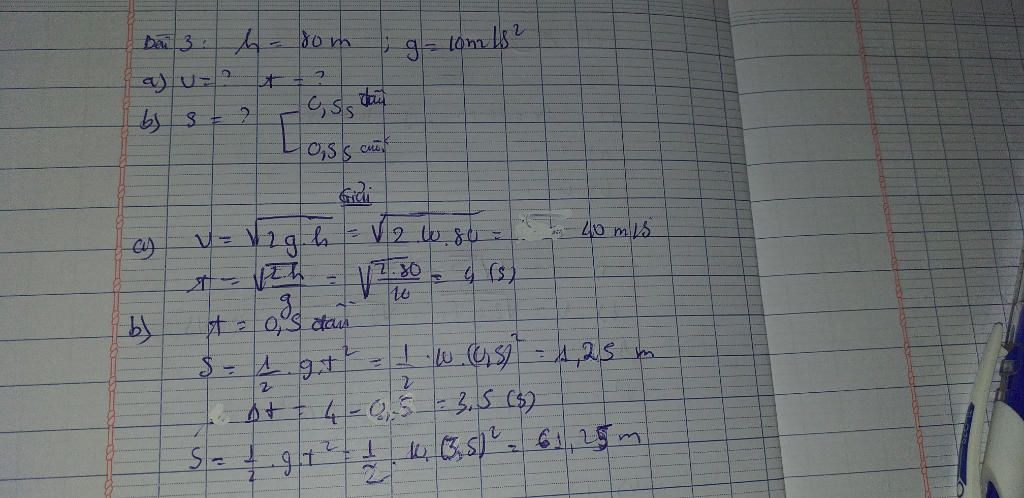 Bài 3: h = 80 m ; g = 10 m/s²
a) v = ? t = ?
b) s = ? [ 0,5s đầu
0,5s cuối
Giải
a) v = √2.g.h = √2.10.80 = 40 m/s
t = √2.h/g = √2.80/10 = 4 (s)
b) t = 0,5 đầu
S = 1/2 . g.t² = 1/2 . 10.(0,5)² = 1,25 m
Δt = 4 - 0,5 = 3,5 (s)
S = 1/2 . g.t² = 1/2 . 10.(3,5)² = 61,25 m